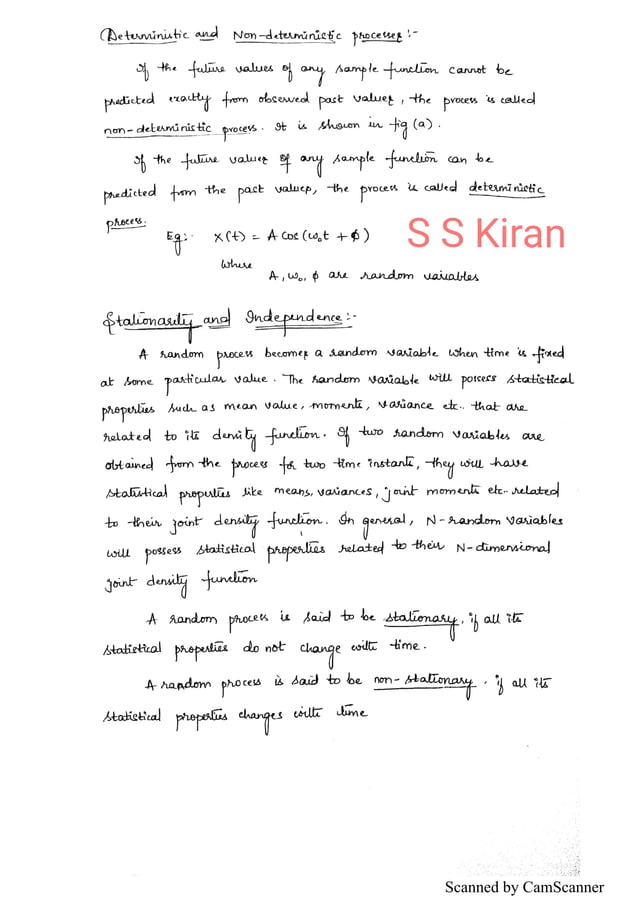 Deterministic and Non-deterministic processes :-
If the future values of any sample function cannot be
predicted exactly from observed past values, the process is called
non-deterministic process. It is shown in fig (a).
If the future values of any sample function can be
predicted from the past values, the process is called deterministic
process.
Eg:- X(t) = A Cos(ω₀t + ϕ)
S S Kiran
where
A, ω₀, ϕ are random variables
Stationarity and Independence:-
A random process becomes a random variable when time is fixed
at some particular value. The random variable will possess statistical
properties such as mean value, moments, variance etc.. that are
related to its density function. If two random variables are
obtained from the process for two time instants, they will have
statistical properties like means, variances, joint moments etc.. related
to their joint density function. In general, N-random variables
will possess statistical properties related to their N-dimensional
joint density function
A random process is said to be stationary, if all its
statistical properties do not change with time.
A random process is said to be non-stationary, if all its
statistical properties changes with time
Scanned by CamScanner